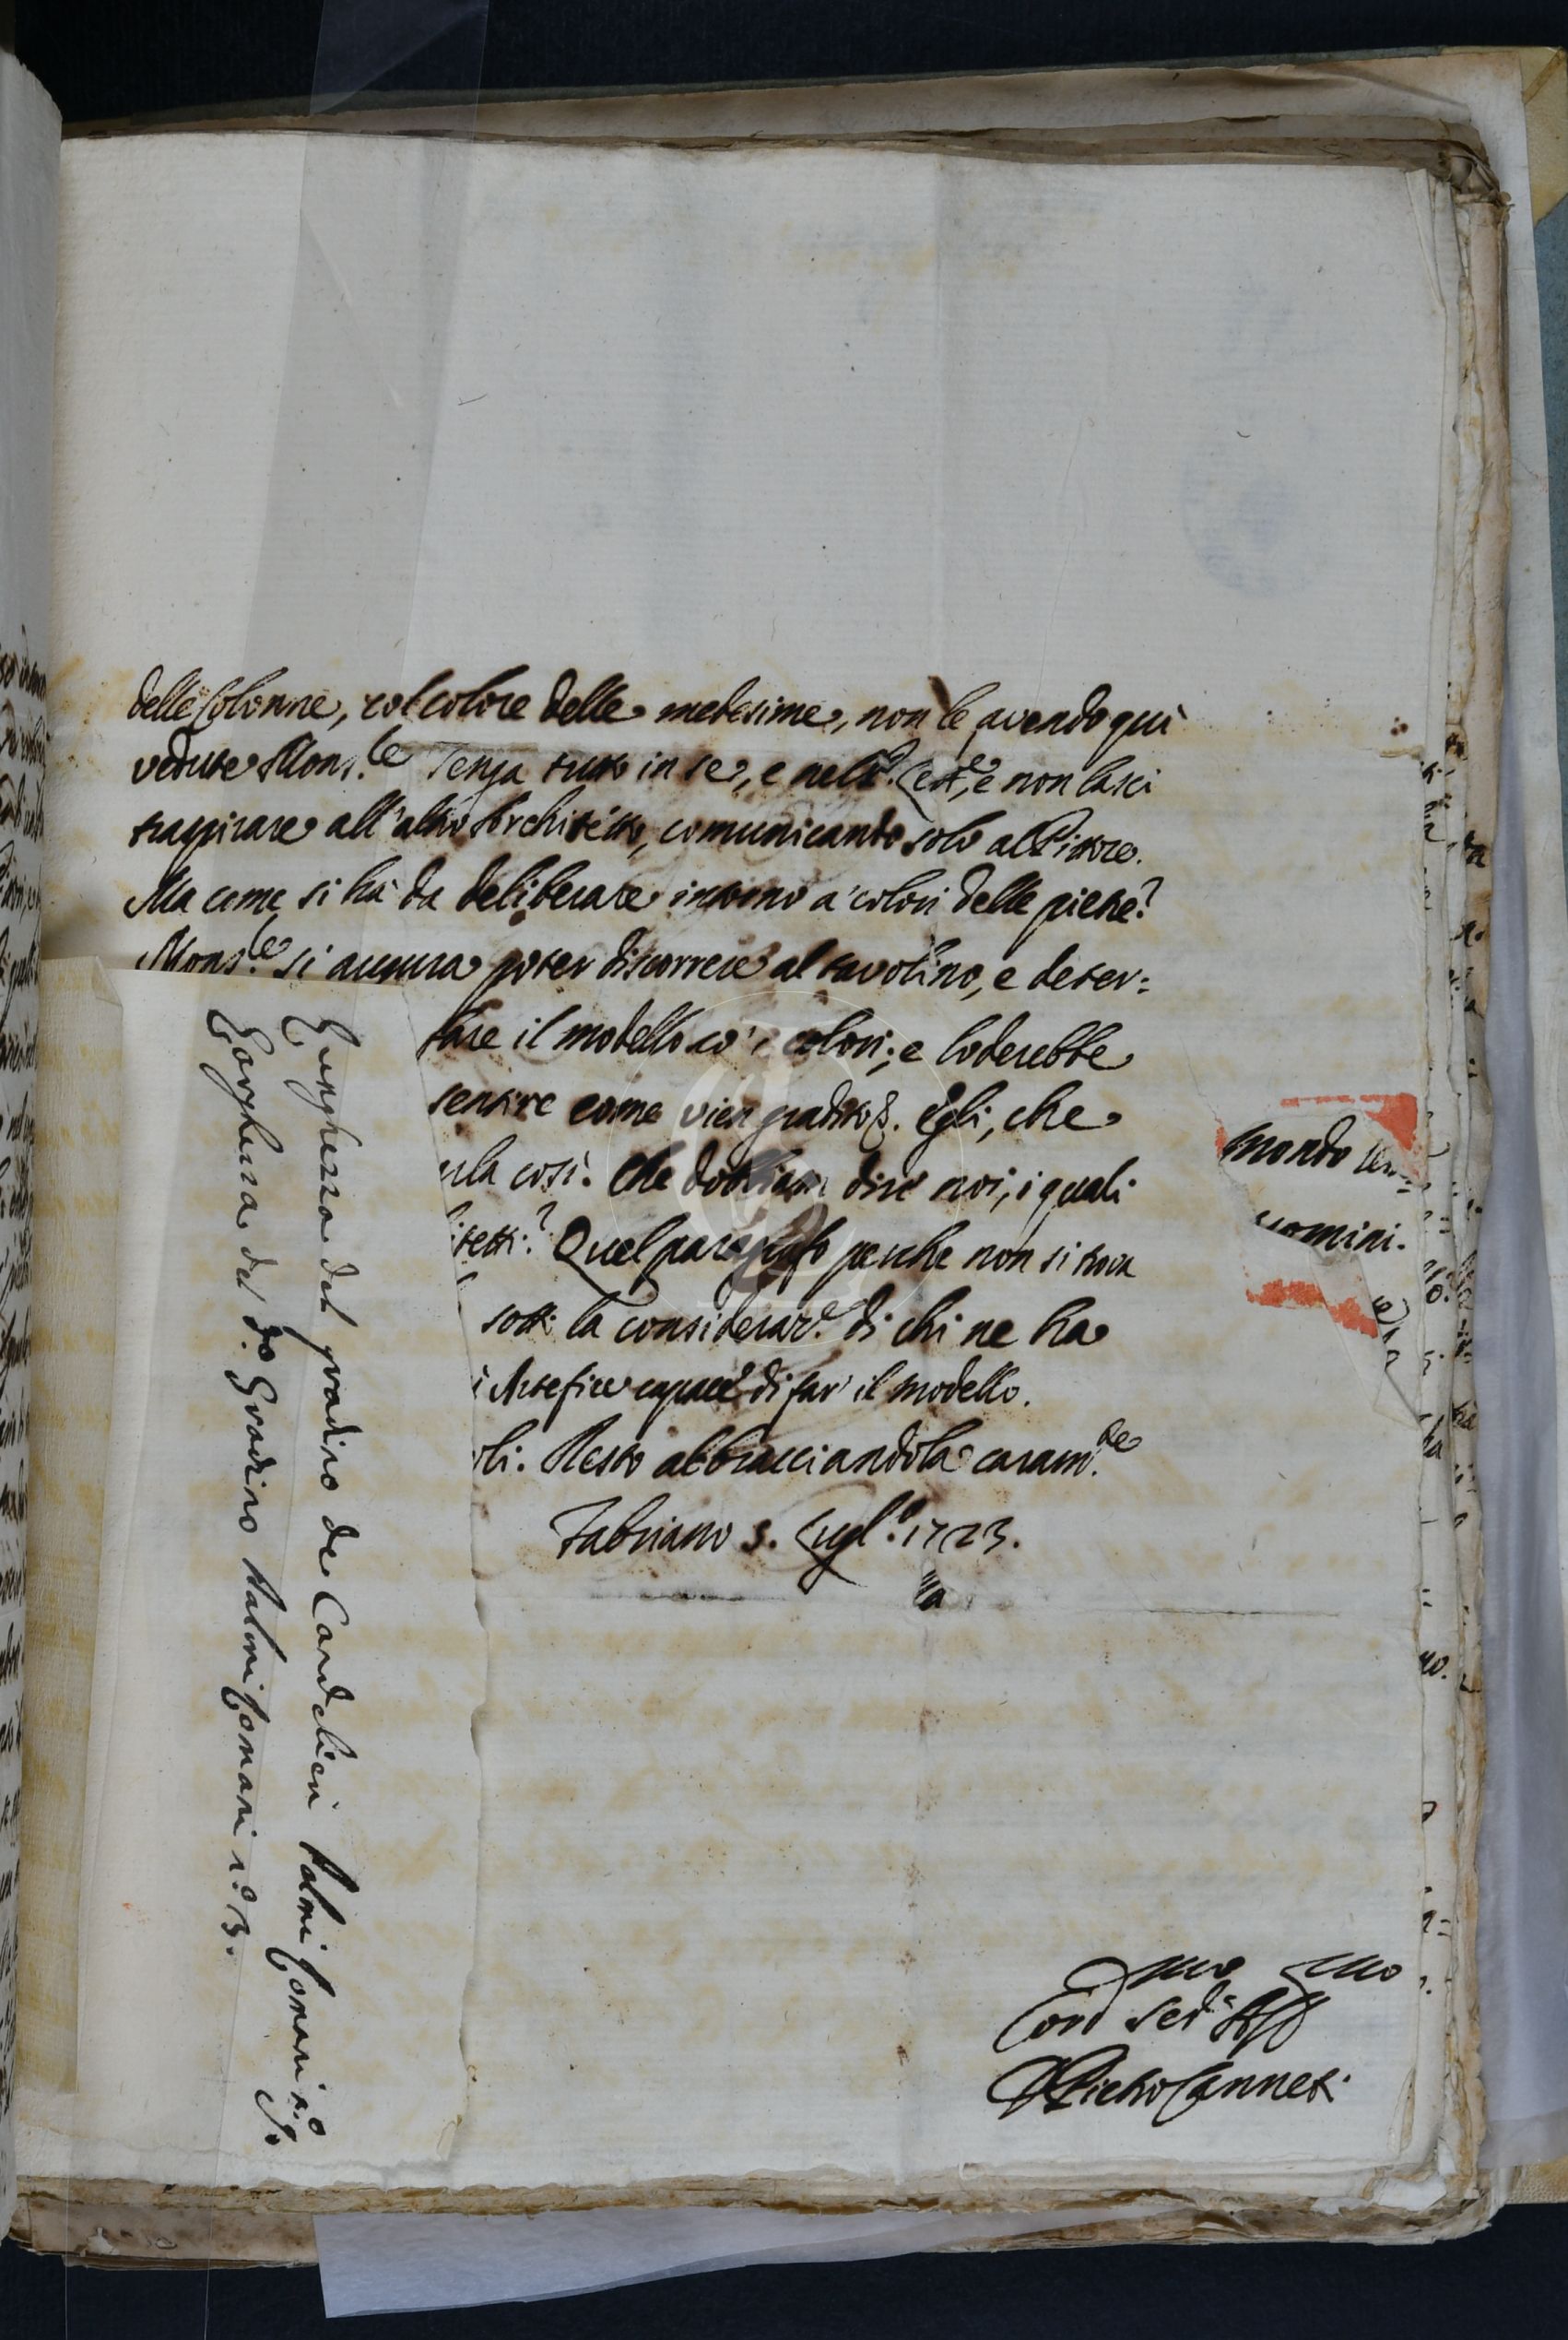 delle Colonne, col colore delle medesime, non le avendo quì
vedute Mons.le Tenga tutto in se, e nell'
e non lasci
traspirare all'altro Architetto, comunicando solo al Pittore.
Ma come si hà da deliberare intorno a' colori delle pietre?
Mons.le si augura poter discorrere al tavolino, e deter=
fare il modello co' i colori; e loderebbe
sentire come vien gradito Egli, che
così. Che dobbiam dire noi, i quali
tetti? Quel paragrafo perche non si trova
sotto la consideraz.e di chi ne ha
Artefice capace di far' il modello.
oli. Resto abbracciandola caram.te
Fabriano 3. Lugl.o 1723.
mondo
uomini.
Pietro Canneti
Lunghezza del gradino de Candelieri Palmi Romani n.o
Larghezza del d.o Gradino Palmi Romani n.o 3.